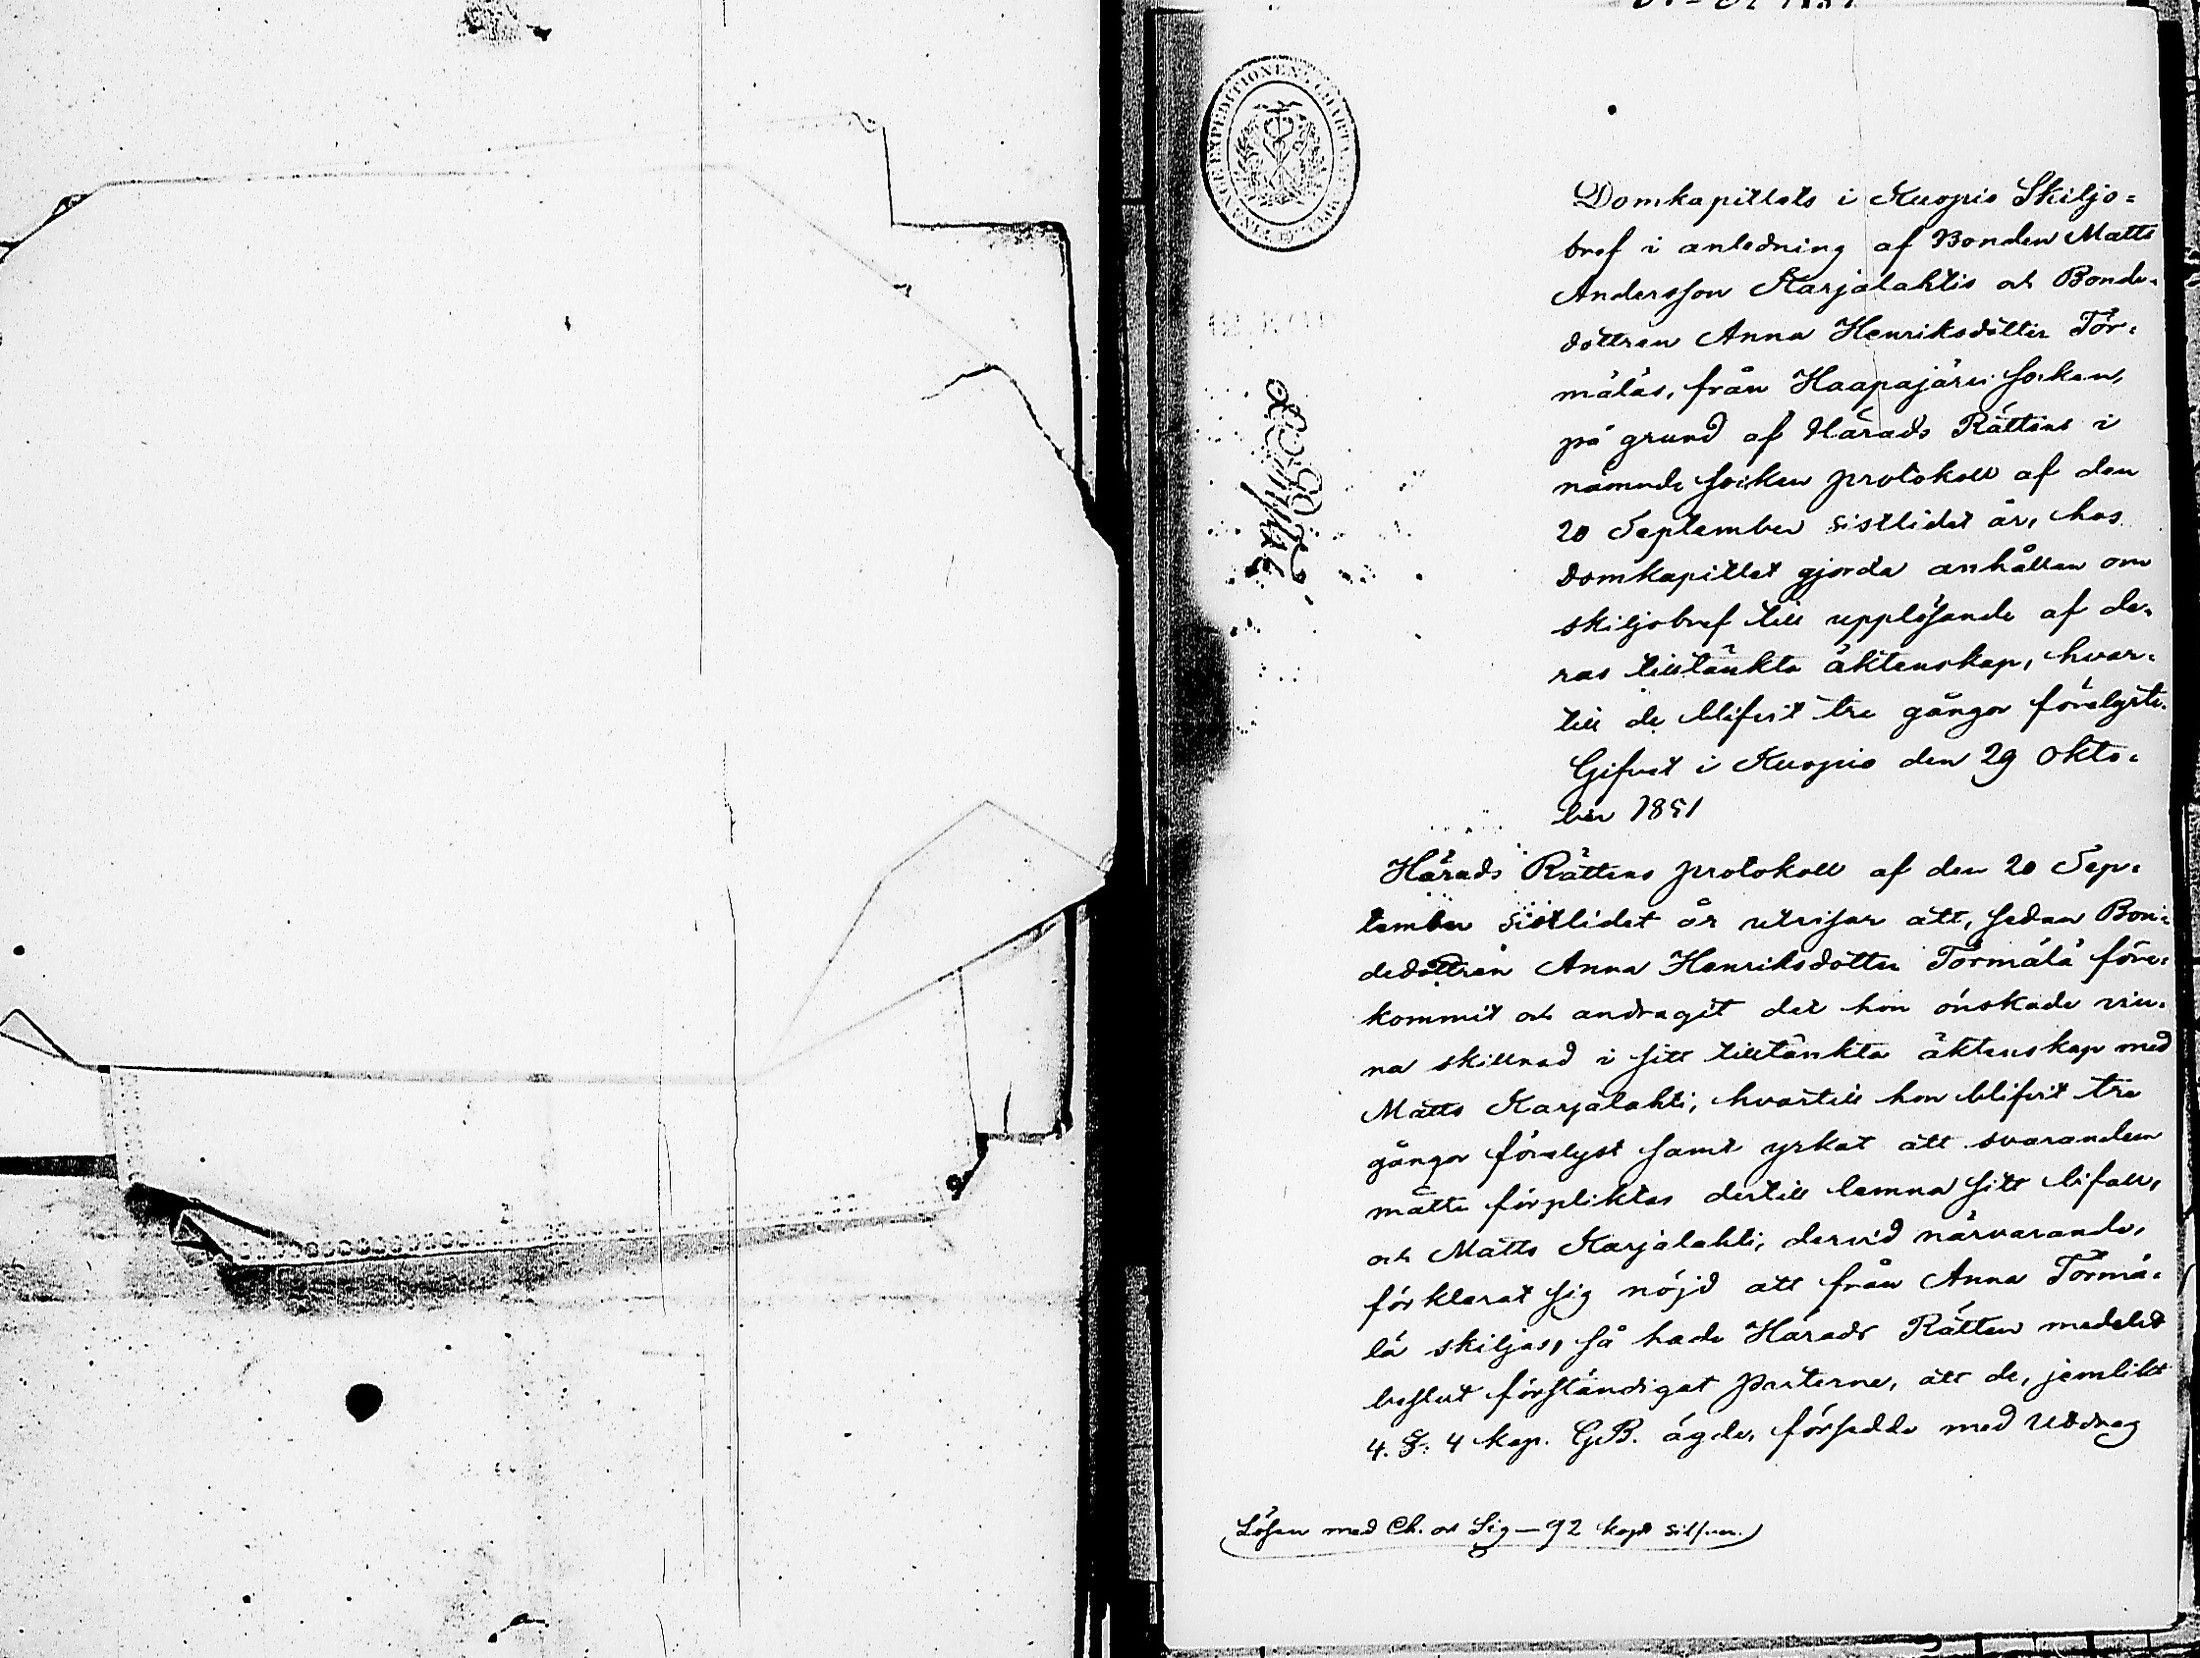 Domkapitlets i Kuopio Skiljo=
bref i anledning af Bonden Matts
Andersson Karjalahtis och Bonde=
dottren Anna Henriksdotter Tör=
mäläs, från Haapajärvi socken,
på grund af Härads Rättens i
nämnde socken protokoll af den
20 September sistlidet år, hos
Domkapitlet gjorda anhållan om
skiljobref till upplösande af de=
ras tilltänkta äktenskap, hvar=
till de blifvit tre gånger förelyste.
Gifvet i Kuopio den 29 Okto=
ber 1851
Härads Rättens protokoll af den 20 Sep=
tember sistlidet år utvisar att, sedan Bon=
dedottren Anna Henriksdotter Törmälä före=
kommit och andragit det hon önskade vin=
na skillnad i sitt tilltänkta äktenskap med
Matts Karjalahti, hvartill hon blifvit tre
gånger förelyst samt yrkat att svaranden
måtte förpliktas dertill lemna sitt bifall,
och Matts Karjalahti, dervid närvarande,
förklarat sig nöjd att från Anna Törmä=
lä skiljas, så hade Härads Rätten medelst
beslut förständigat parterne, att de, jemlikt
4. §. 4 kap. G.B. ägde, försedde med utdrag
Lösen med Ch. och Sig — 92 kop. silfver.